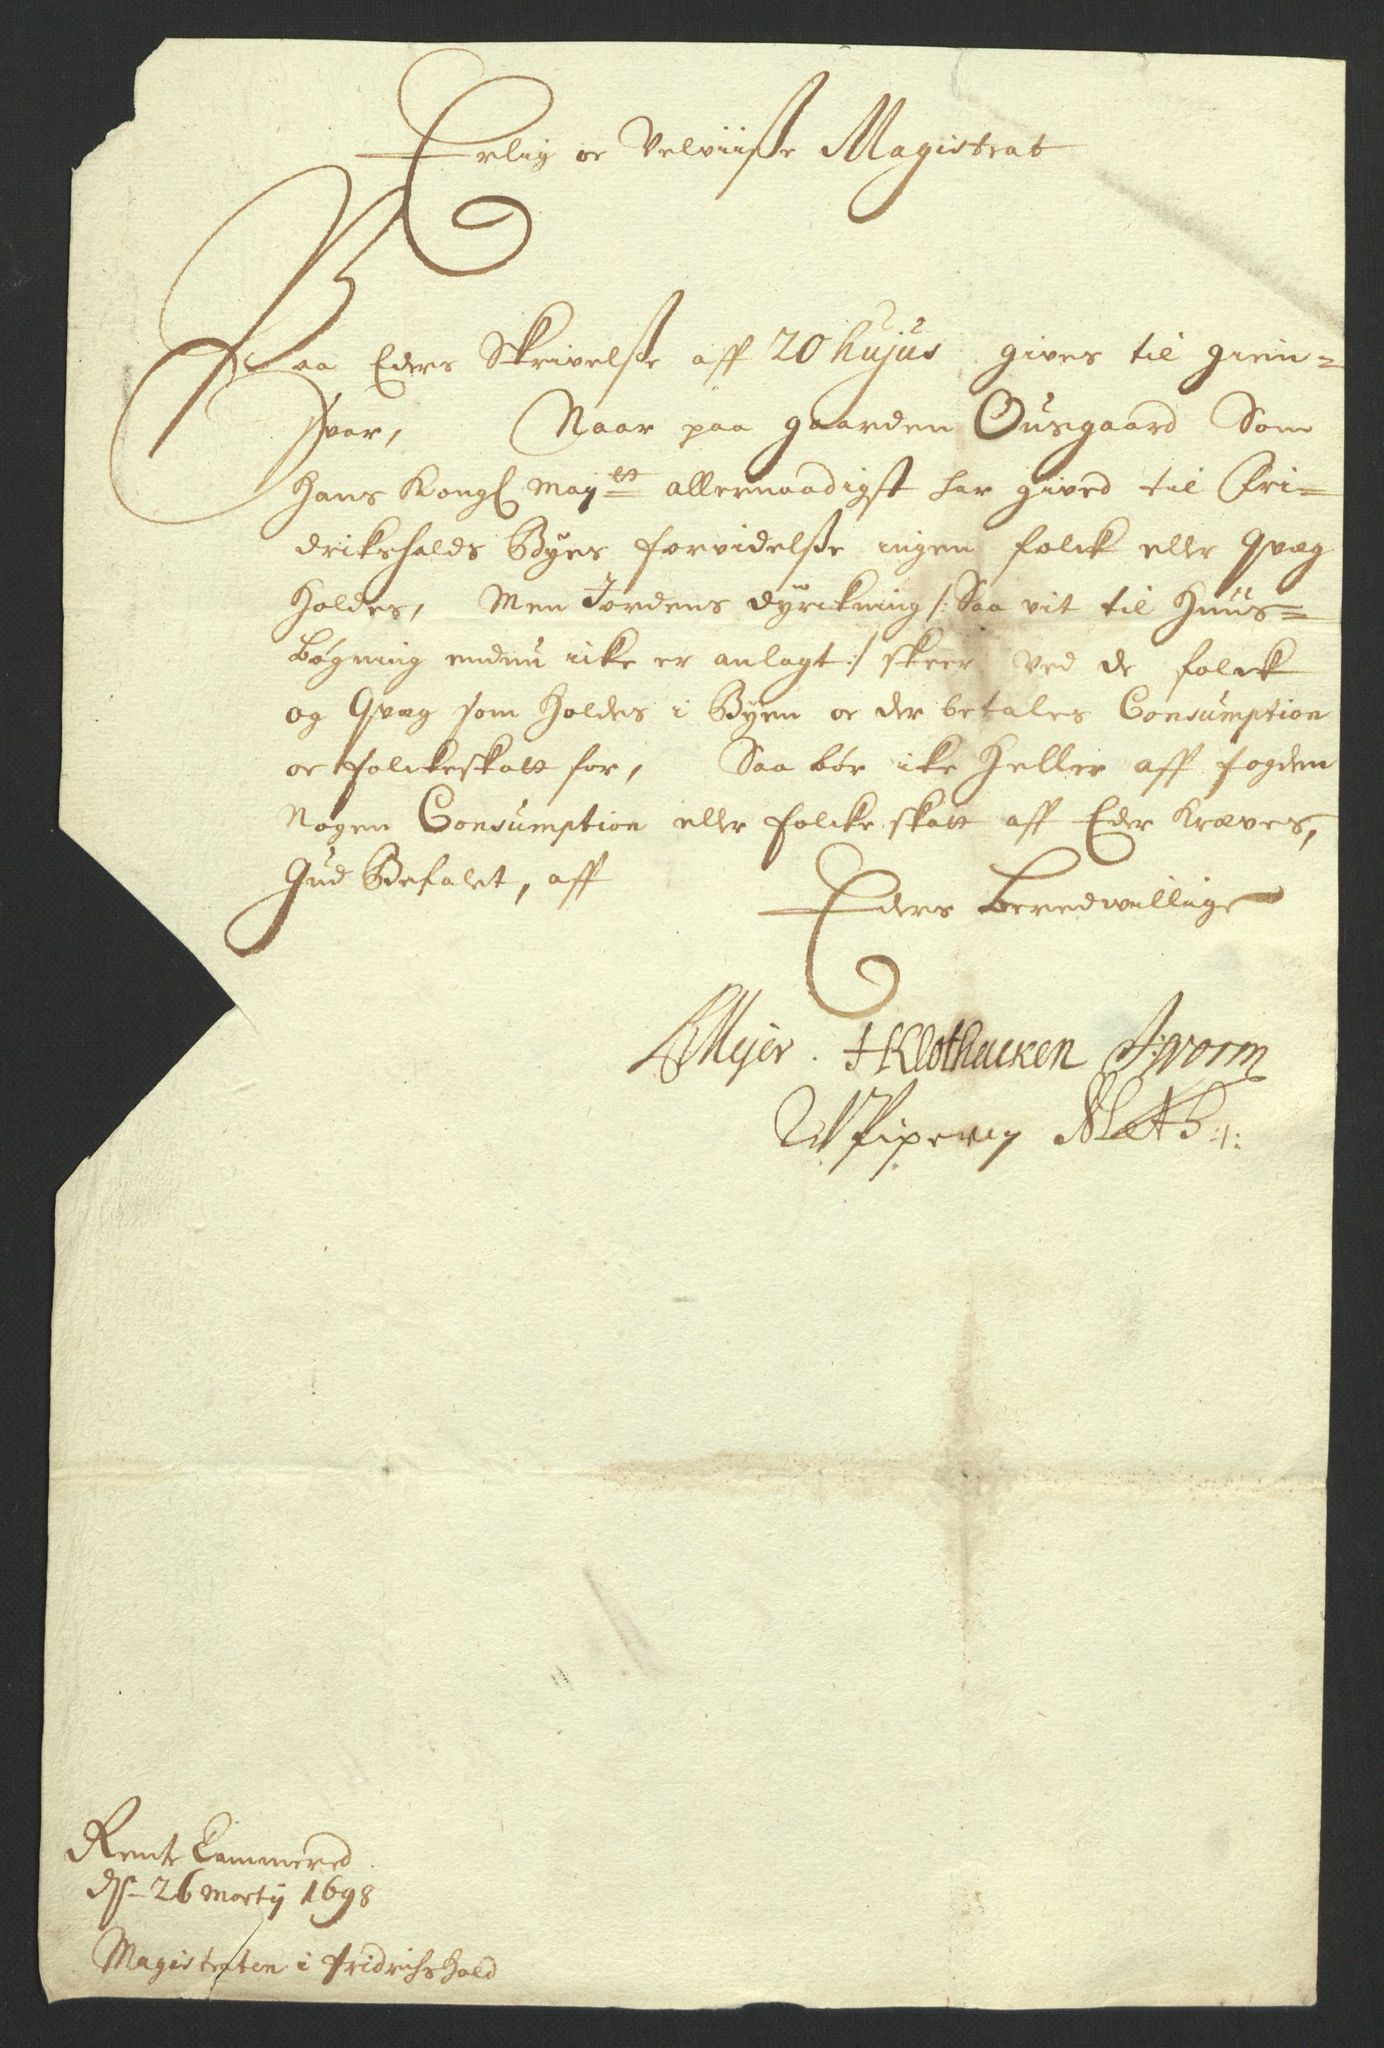 Erlig oc Velviisse Magistrat
Paa Eders Skrivelsse aff 20 hujus gives til gien=
svar, Naar paa gaarden Ousgaard Som
Hans Kongl May.tt allernaadigst har gived til Fri=
drikshalds Byes forvidelsse ingen folck eller Qvæg
holdes, Men Jordens dyrckning /: Saa vit til Huus=
bøgning endnu icke er anlagt :/ skeer ved de folck
og Qvæg som holdes i Byen oc der betales Consumption
oc folckeskatt for, Saa bør icke heller aff fogden
Nogen Consumption eller folckeskatt aff Eder Kræves,
Gud Befalet, aff
Eders Beredwillige
Meyer. HKlothacken Worm
Pipervig
Rente Cammered
ds 26 Martij 1698
Magistraten i Fridrichshald